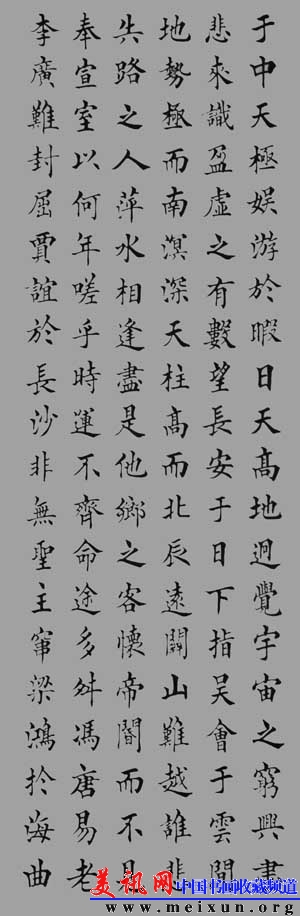 于中天極娛游於暇日天高地迥覺宇宙之窮興盡
悲來識盈虛之有數望長安于日下指吳會于雲間
地勢極而南溟深天柱高而北辰遠關山難越誰悲
失路之人萍水相逢盡是他鄉之客懷帝閽而不見
奉宣室以何年嗟乎時運不齊命途多舛馮唐易老
李廣難封屈賈誼於長沙非無聖主竄梁鴻於海曲
美讯网 中国书画收藏频道
www.meixun.org